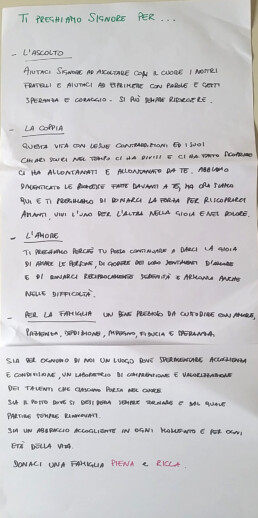 TI PREGHIAMO SIGNORE PER ...
- L'ASCOLTO
AIUTACI SIGNORE AD ASCOLTARE CON IL CUORE I NOSTRI
FRATELLI E AIUTACI AD ESPRIMERE CON PAROLE E GESTI
SPERANZA E CORAGGIO. SI PUÒ SEMPRE RISORGERE.
- LA COPPIA
QUESTA VITA CON LE SUE CONTRADDIZIONI ED I SUOI
CHIARI SCURI NEL TEMPO CI HA DIVISI E CI HA
CI HA ALLONTANATI E ALLONTANATO DA TE. ABBIAMO
DIMENTICATO LE PROMESSE FATTE DAVANTI A TE, MA ORA SIAMO
QUI E TI PREGHIAMO DI DONARCI LA FORZA PER RISCOPRIRCI
AMANTI VIVI L'UNO PER L'ALTRA NELLA GIOIA E NEL DOLORE.
- L'AMORE
TI PREGHIAMO PERCHÉ TU POSSA CONTINUARE A DARCI LA GIOIA
DI AMARE LE PERSONE, DI GODERE DEI LORO SENTIMENTI D'AMORE
E DI DONARCI RECIPROCAMENTE SERENITÀ E ARMONIA ANCHE
NELLE DIFFICOLTÀ.
- PER LA FAMIGLIA UN BENE PREZIOSO DA CUSTODIRE CON AMORE,
PAZIENZA, DEDIZIONE, IMPEGNO, FIDUCIA E SPERANZA.
SIA PER OGNUNO DI NOI UN LUOGO DOVE SPERIMENTARE ACCOGLIENZA
E CONDIVISIONE, UN LABORATORIO DI COMPRENSIONE E VALORIZZAZIONE
DEI TALENTI CHE CIASCUNO PORTA NEL CUORE.
SIA IL POSTO DOVE SI DESIDERA SEMPRE TORNARE E DAL QUALE
PARTIRE SEMPRE RINNOVATI.
SIA UN ABBRACCIO ACCOGLIENTE IN OGNI MOMENTO E PER OGNI
ETÀ DELLA VITA.
DONACI UNA FAMIGLIA PIENA E RICCA.